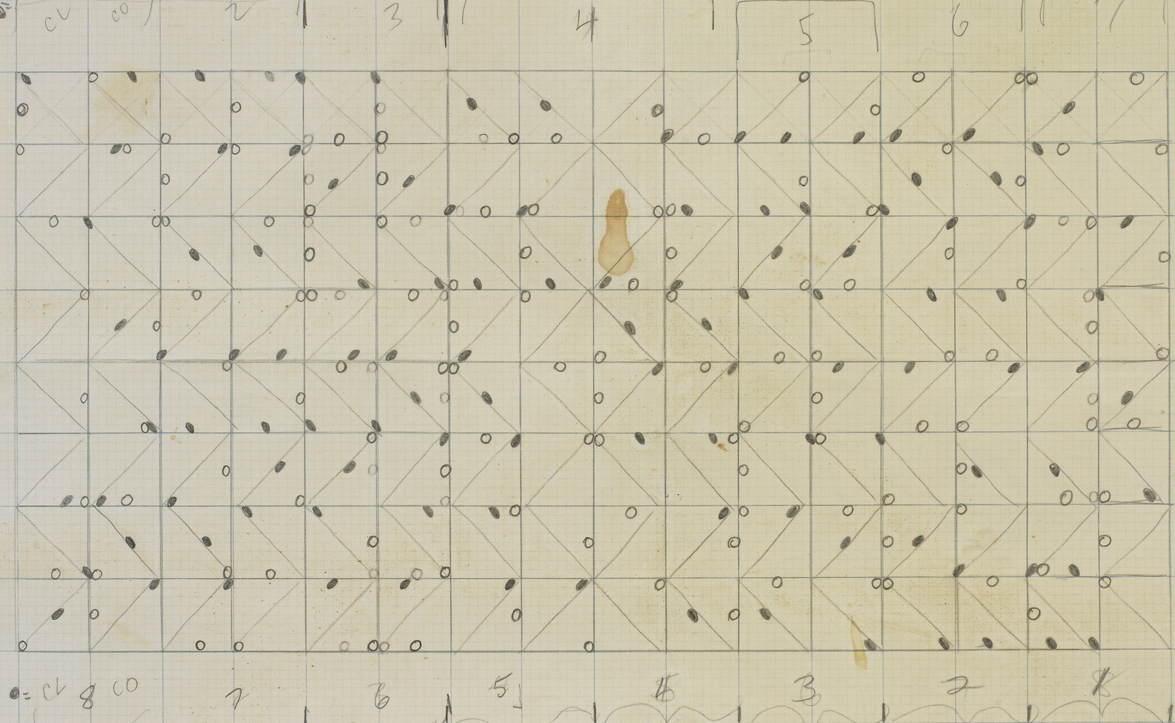 CL CO 2 3 4 5 6 7
= CL 8 CO 7 6 5 4 3 2 1